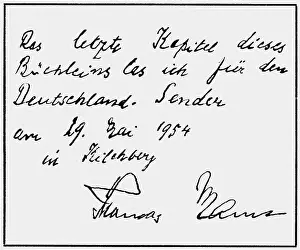 Das letzte Kapitel dieses
Büchleins las ich für den
Deutschland-Sender
am 29. Mai 1954
in Kilchberg
Thomas Mann